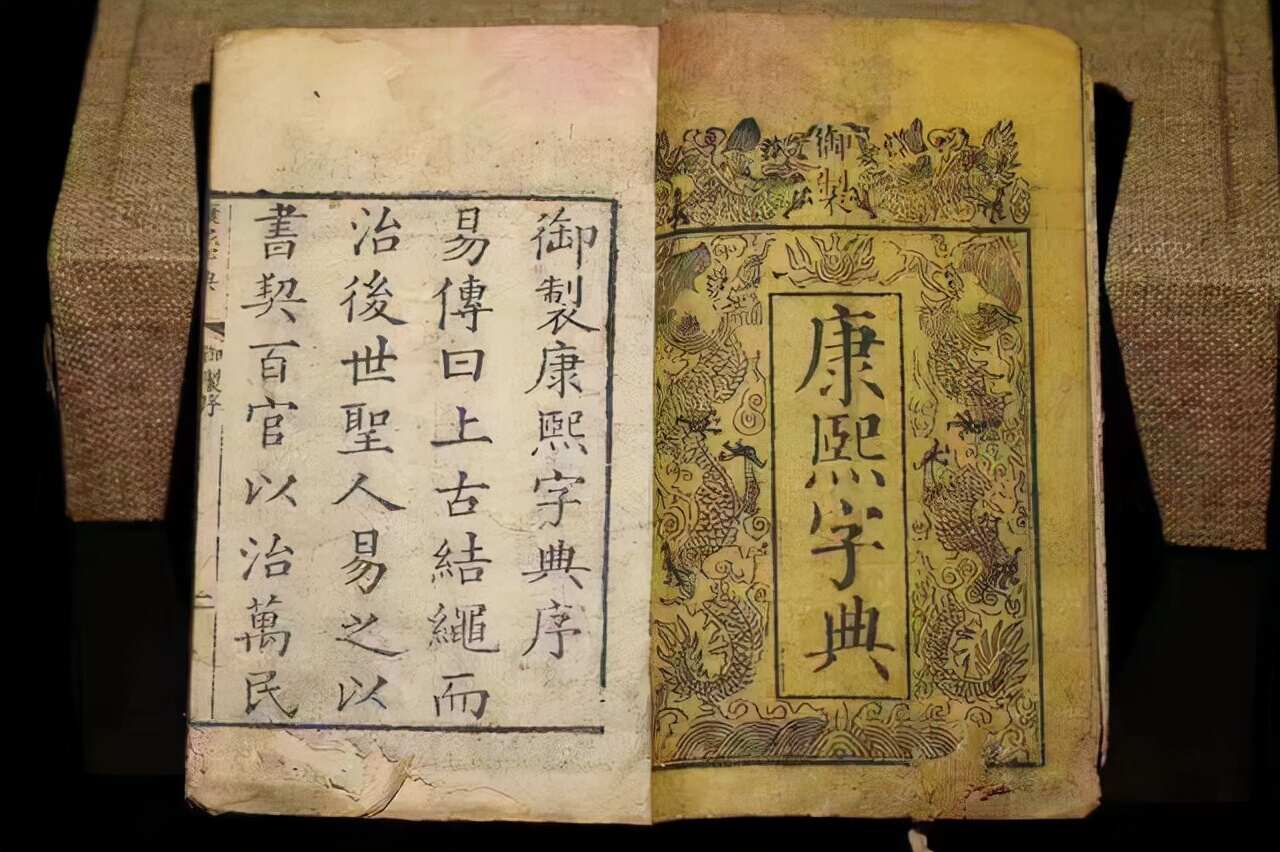 御製
康熙字典
御製康熙字典序
易傳曰上古結繩而
治後世聖人易之以
書契百官以治萬民
御製序